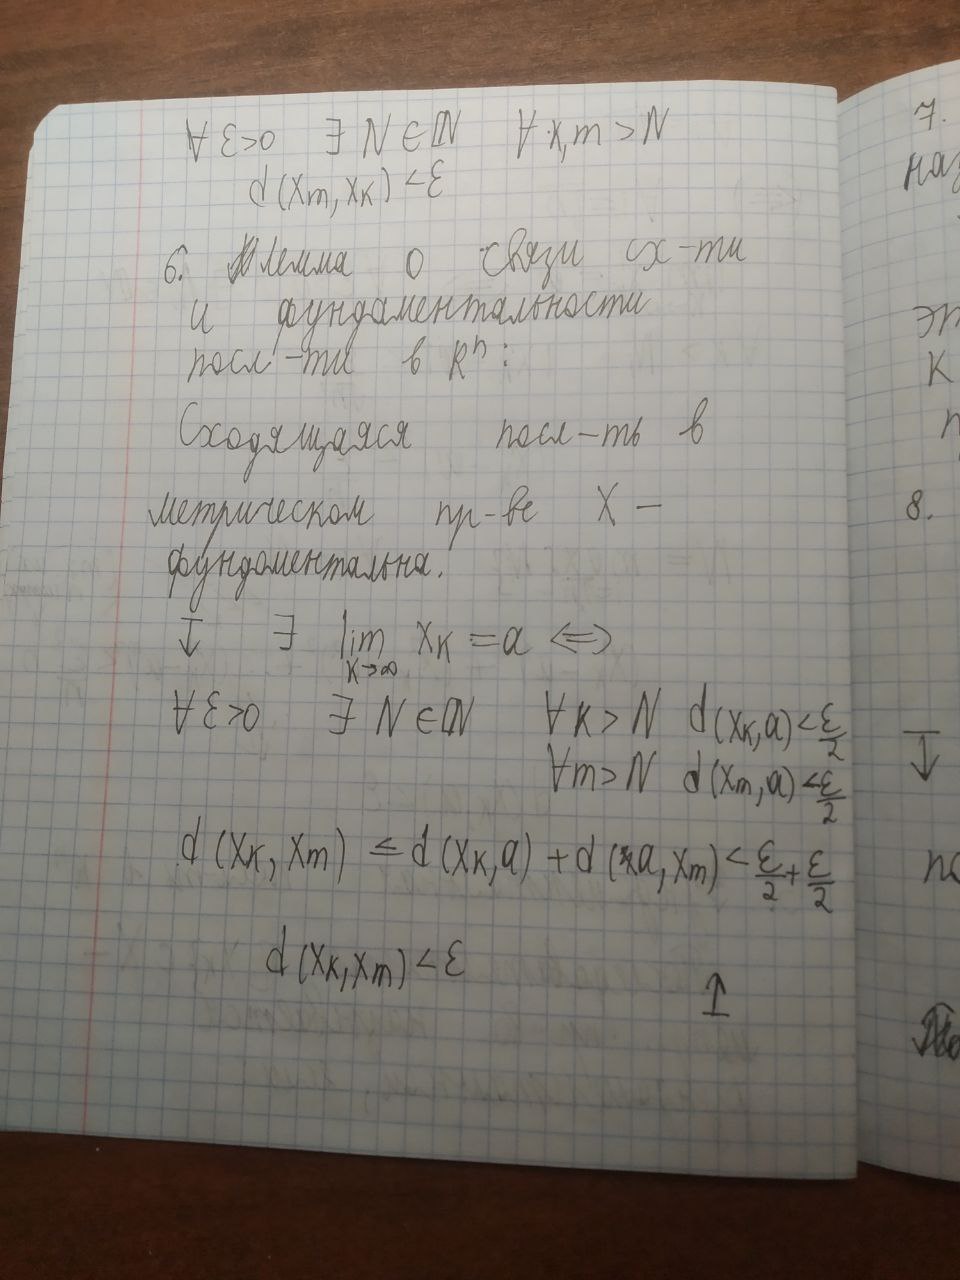 ∀ ε>0 ∃ N∈ℕ ∀ k,m > N
d(xm, xk) < ε
6. Лемма о связи сх-ти
и фундаментальности
посл-ти в Rⁿ:
Сходящаяся посл-ть в
метрическом пр-ве X –
фундаментальна.
↓ ∃ lim xk = a ⇔
k→∞
∀ ε>0 ∃ N∈ℕ ∀ k > N d(xk, a) < ε/2
∀ m > N d(xm, a) < ε/2
d(xk, xm) ≤ d(xk, a) + d(a, xm) < ε/2 + ε/2
d(xk, xm) < ε
↑
7.
наз
эт
к
8.
↓